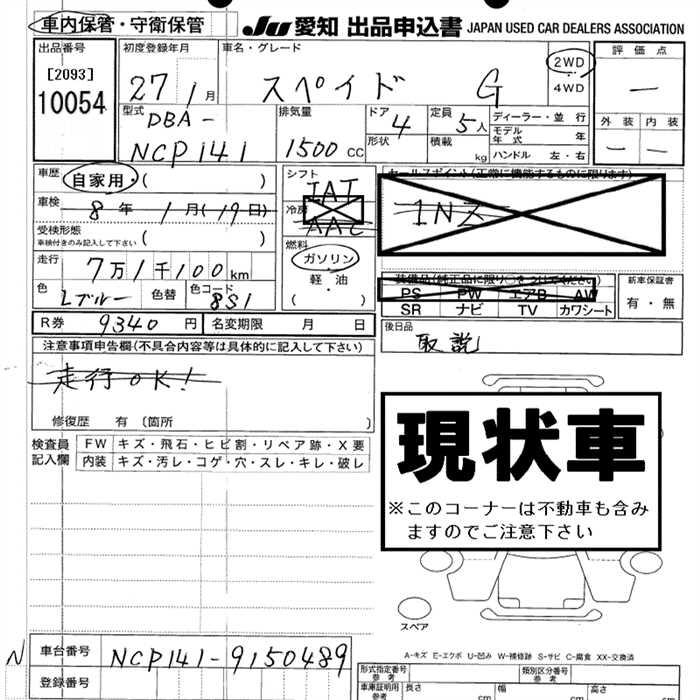 車内保管・守衛保管
JU 愛知 出品申込書 JAPAN USED CAR DEALERS ASSOCIATION
出品番号
[2093]
10054
初度登録年月
27 1月
車名・グレード
スペイド G
2WD
4WD
評価点
—
外装 内装
— —
型式
DBA-
NCP141
排気量
1500 CC
ドア
4
形状
定員
5人
積載
kg
ディーラー・並行
モデル年式 年
ハンドル 左・右
車歴
自家用・( )
車検
8年 1月(19日)
受検形態
車検付きのみ記入して下さい
( )
走行
7万1千100km
色 Lブルー 色替 色コード 8S1
シフト
IAT
冷房
AAC
燃料
ガソリン
軽・油
( )
セールスポイント(正常に機能するものに限ります)
1NZ
装備品(純正品に限り○をつけてください)
PS PW エアB AW
SR ナビ TV カワシート
新車保証書
有・無
R券 9340円 名変期限 月 日
後日品
取説
注意事項申告欄(不具合内容等は具体的に記入して下さい)
走行OK!
修復歴 有 〔箇所 〕
検査員記入欄
FW キズ・飛石・ヒビ割・リペア跡・X要
内装 キズ・汚レ・コゲ・穴・スレ・キレ・破レ
現状車
※このコーナーは不動車も含み
ますのでご注意下さい
スペア
A-キズ E-エクボ U-凹み W-補修跡 S-サビ C-腐食 XX-交換済
N
車台番号 NCP141-9150489
登録番号
形式指定番号 類別区分番号
参考
車庫証明用 長さ 幅 高さ
参考 cm cm cm